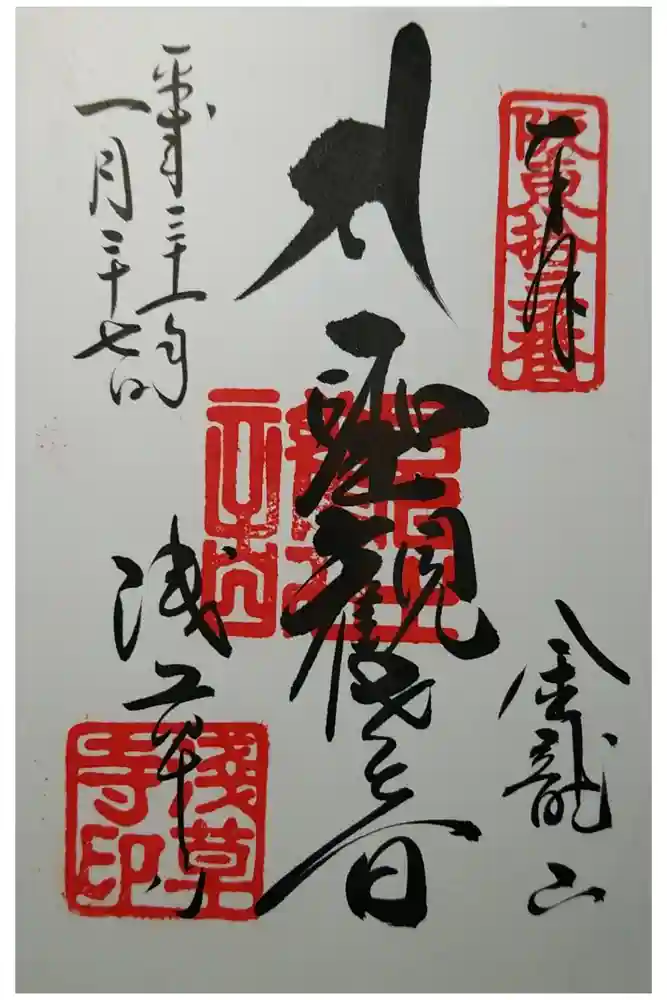 奉拝
阪東拾三番
金龍山
聖観世音
浅草寺
浅草寺印
平成三十一年
一月二十七日